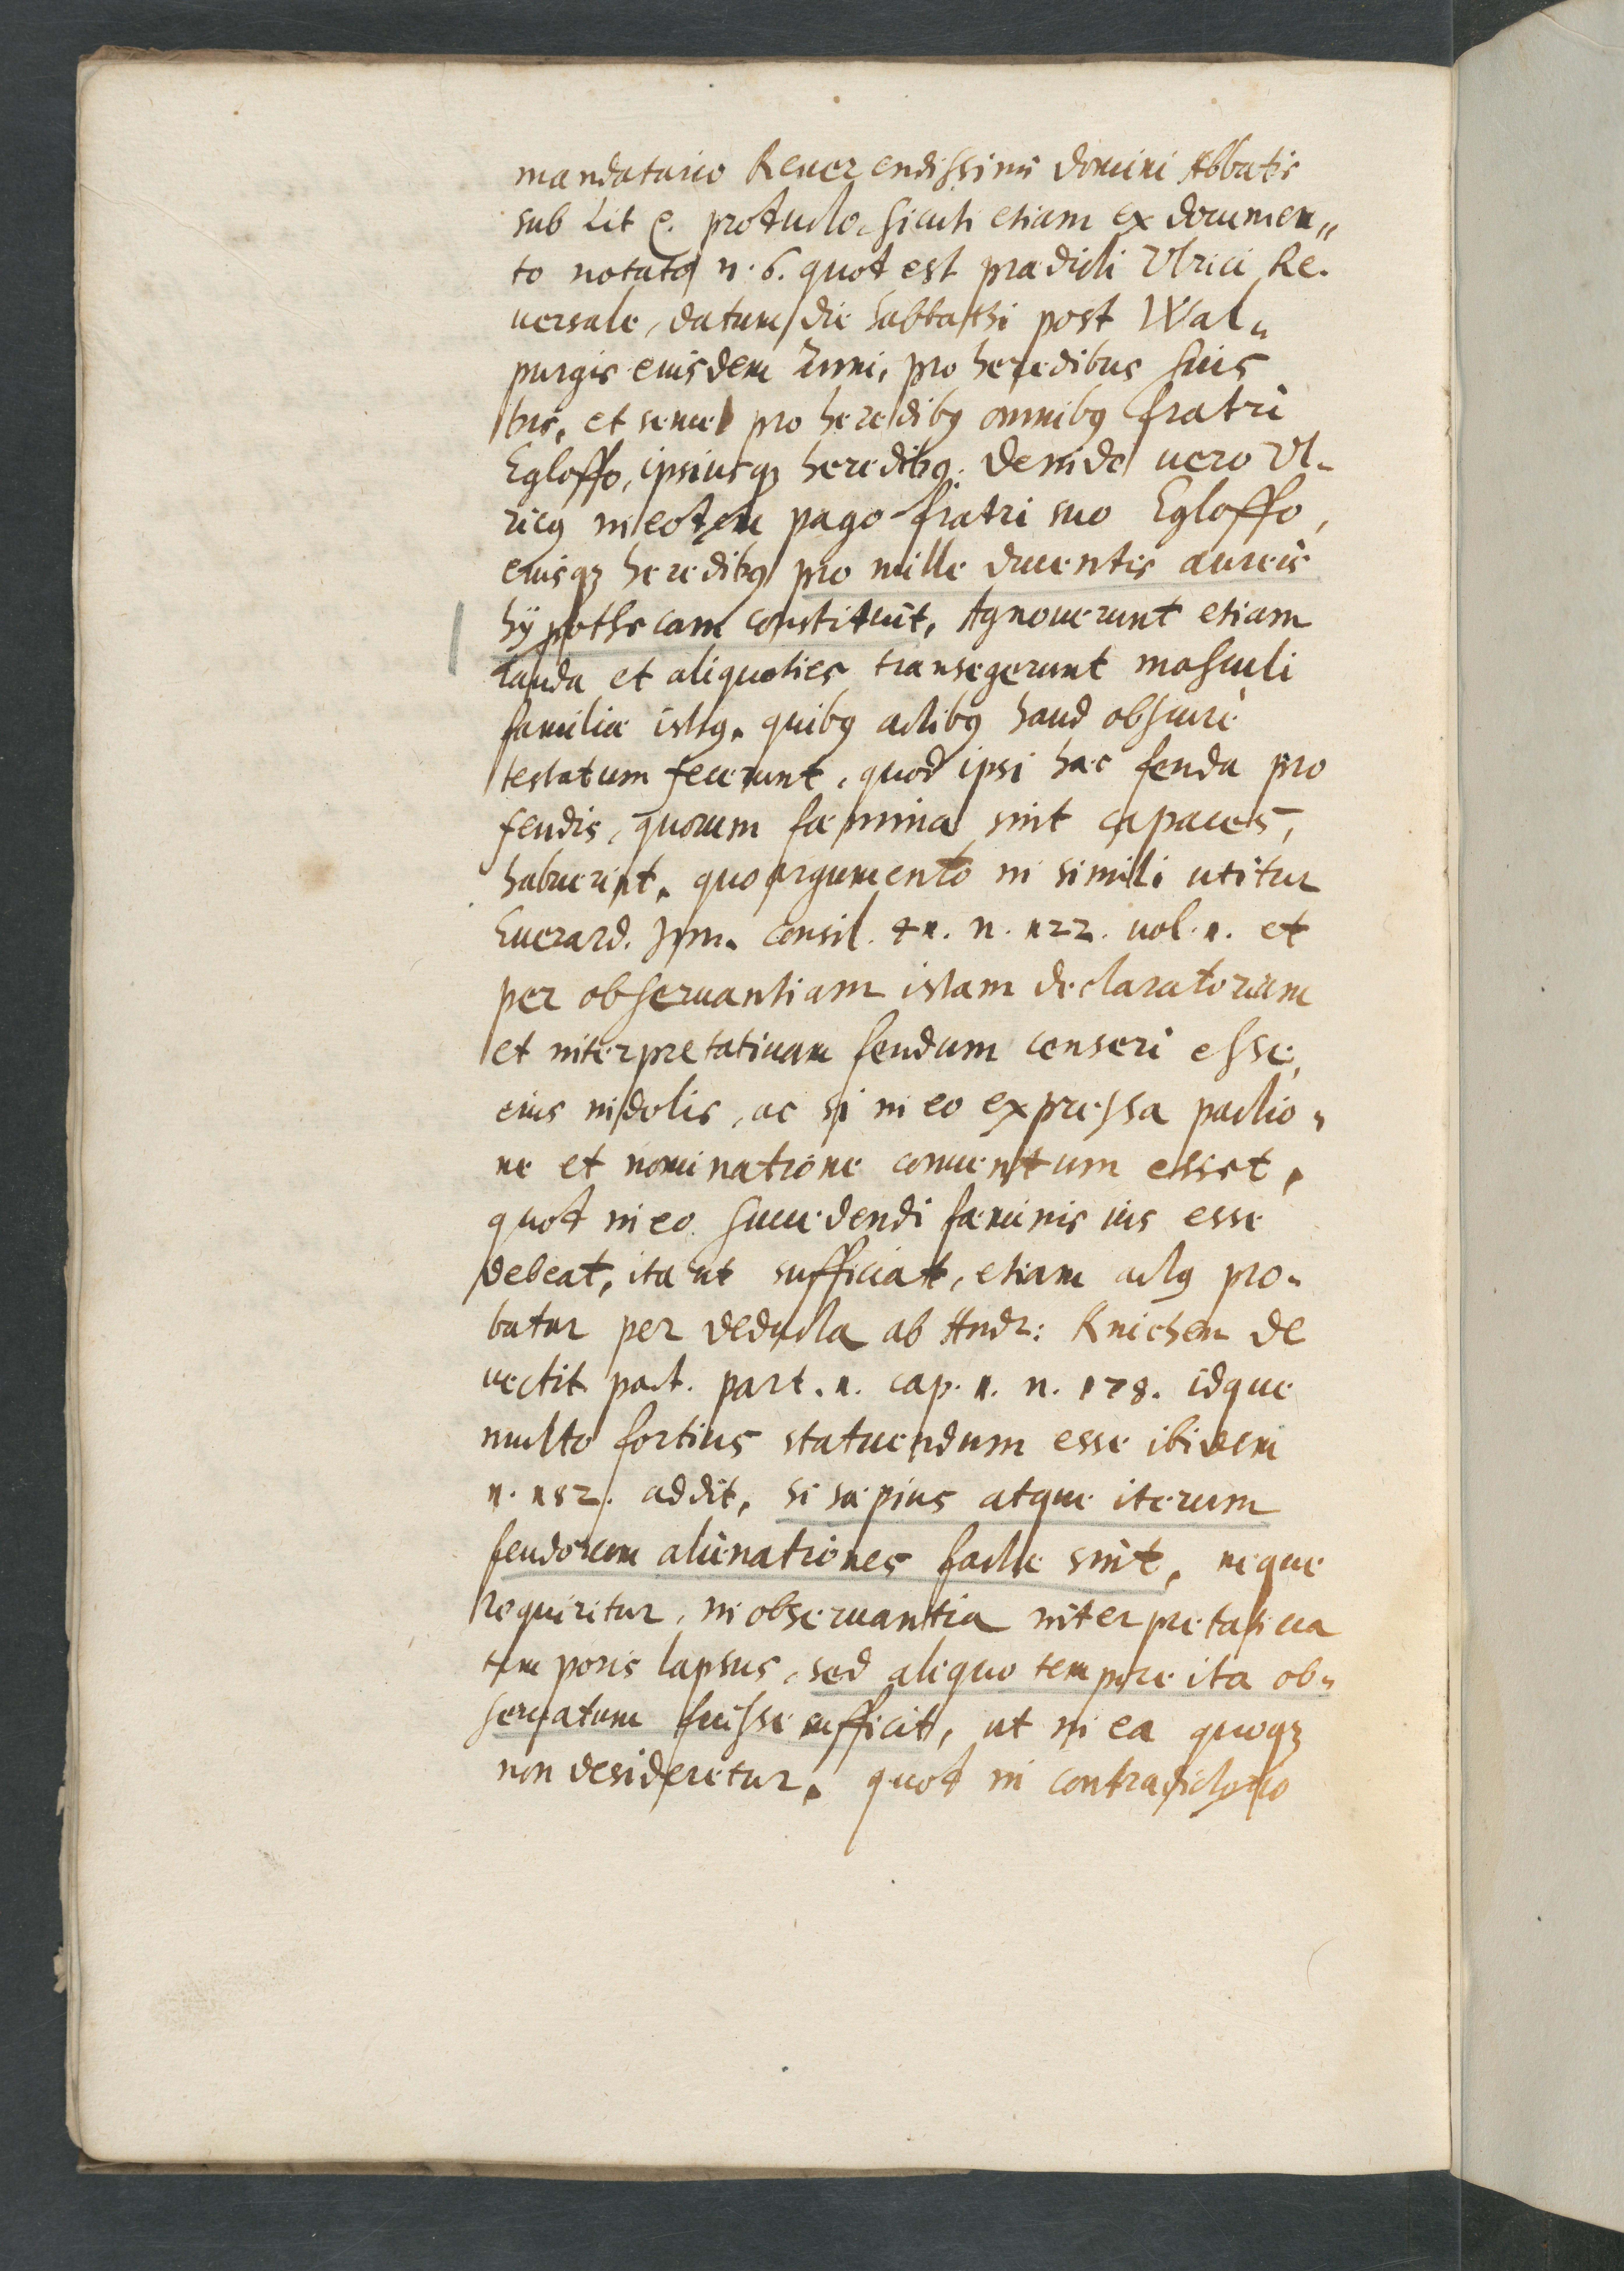 mandatario Reuerendissimi domini Abbatis
sub Lit C. protucto, sicuti etiam ex documen„
to notato n. 6. quod est prædicti Vlrici Re-
uersale, datum die sabbathi post Wal„
purgis eiusdem anni, pro heredibus suis
bis, et semel pro heredibꝰ omnibꝰ fratri
Egloffo, ipsiusqꝫ heredibꝰ. Deinde uero Vl-
ricꝰ in eodem pago fratri suo Egloffo,
eiusqꝫ heredibꝰ pro mille ducentis aureis
hÿpothecam constituit, Agnouerunt etiam
lauda et aliquoties transegerunt masculi
familiæ istiꝰ, quibꝰ actibꝰ haud obscurè
testatum fecerunt, quod ipsi hæc feuda pro
feudis, quorum fœminæ sint capaces,
habuerint, quo argumento in simili utitur
Euerard. consil. n. 122. uol. 1. et
per obseruantiam istam declaratoriam
et interpretatiuam feudum censeri esse,
eius indolis, ac si in eo expressa pactio„
ne et nominatione conuentum esset,
quod in eo succedendi fæminis ius esse
debeat, ita ut sufficiat, etiam actꝰ pro-
batur per deducta ab Andr: Knichen de
vectit. pact. part. 1. cap. 1. n. 178. idque
multo fortius statuendum esse ibidem
n. 182. addit, si sæpius atque iterum
feudorum alienationes factæ sint, neque
requiritur, in obseruantia interpretatiua
temporis lapsus, sed aliquo tempore ita ob„
seruatum fuisse sufficit, ut in ea quoqꝫ
non desideretur, quod in contradictorio